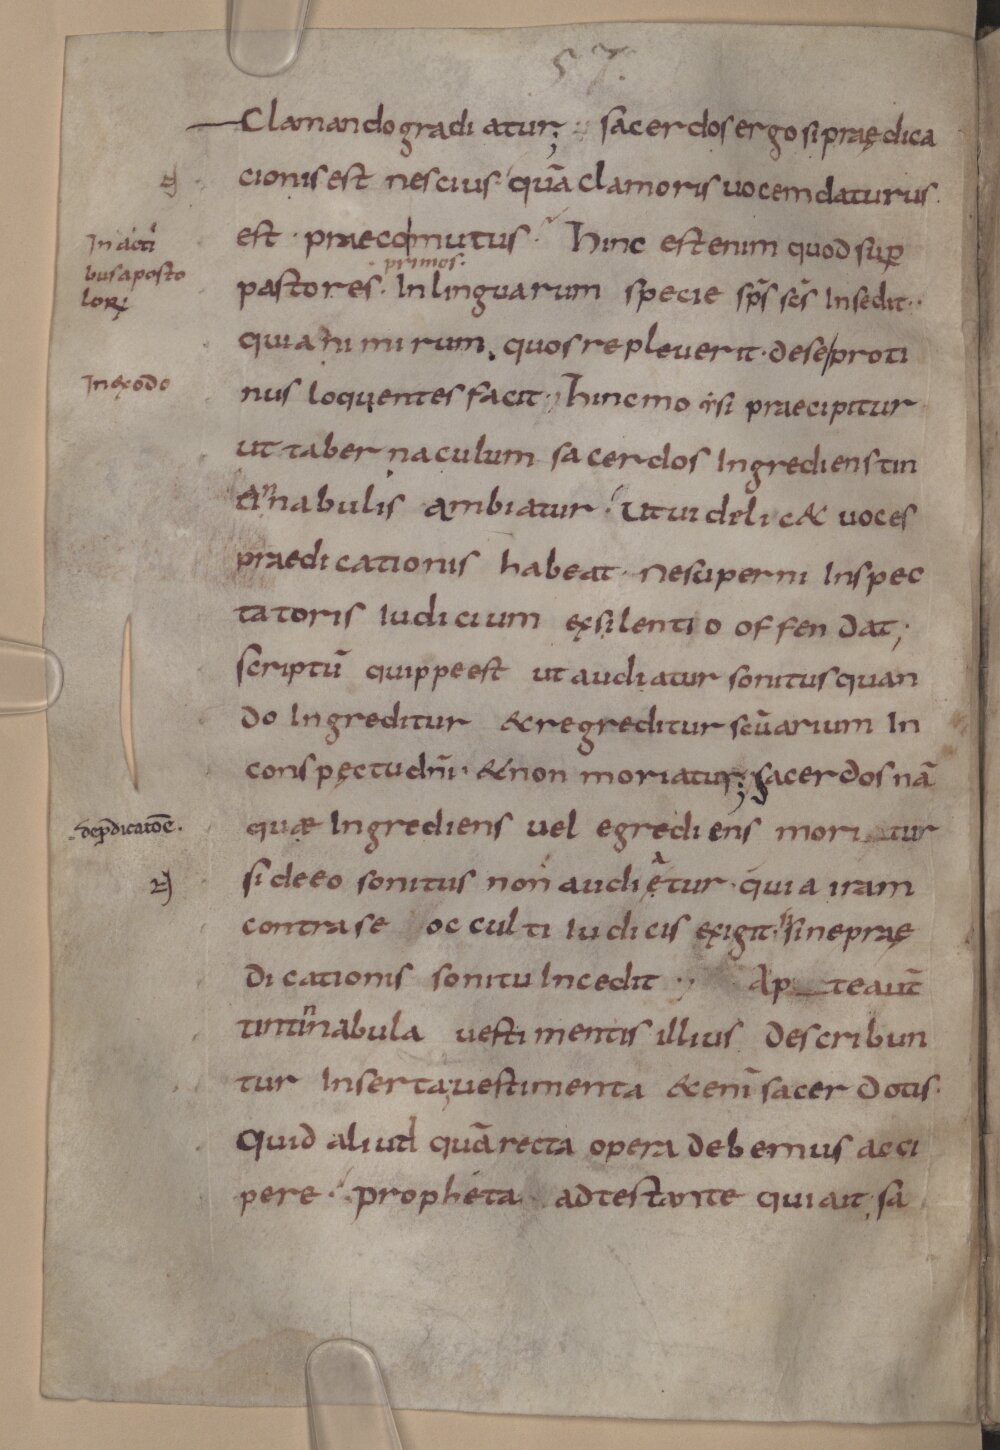 57.
Clamando gradiatur; sacerdos ergo si praędica
cionis est nescius. quā clamoris uocem daturus.
est. praeco mutus. Hinc est enim quod sup̄
In acti
bus aposto
lorꝝ
primos.
pastores. In linguarum specie sp̄s sc̄s Insedit.
quia nimirum. quos repleuerit. de se proti
In exodo
nus loquentes facit; Hinc moysi praecipitur
ut tabernaculum sacerdos Ingrediens tin
tinnabulis ambiatur. Ut uidelic& uoces
praedicationis habeat. ne superni Inspec
tatoris Iudicium ex silentio offendat;
scriptū quippe est ut audiatur sonitus quan
do Ingreditur & regreditur sc̄uarium In
conspectu dn̄i. & non moriatur; sacerdos nā
de p̄dicatōe.
quæ Ingrediens uel egrediens moritur
si de eo sonitus non audiętur. quia iram
contra se occulti Iudicis exigit. si sine prae
dicationis sonitu Incedit; Apte aut̄
tintinnabula uestimentis illius describun
tur Inserta; uestimenta &eni̅ sacerdotis.
Quid aliud quā recta opera debemus acci
pere. propheta adtestante qui ait, sa